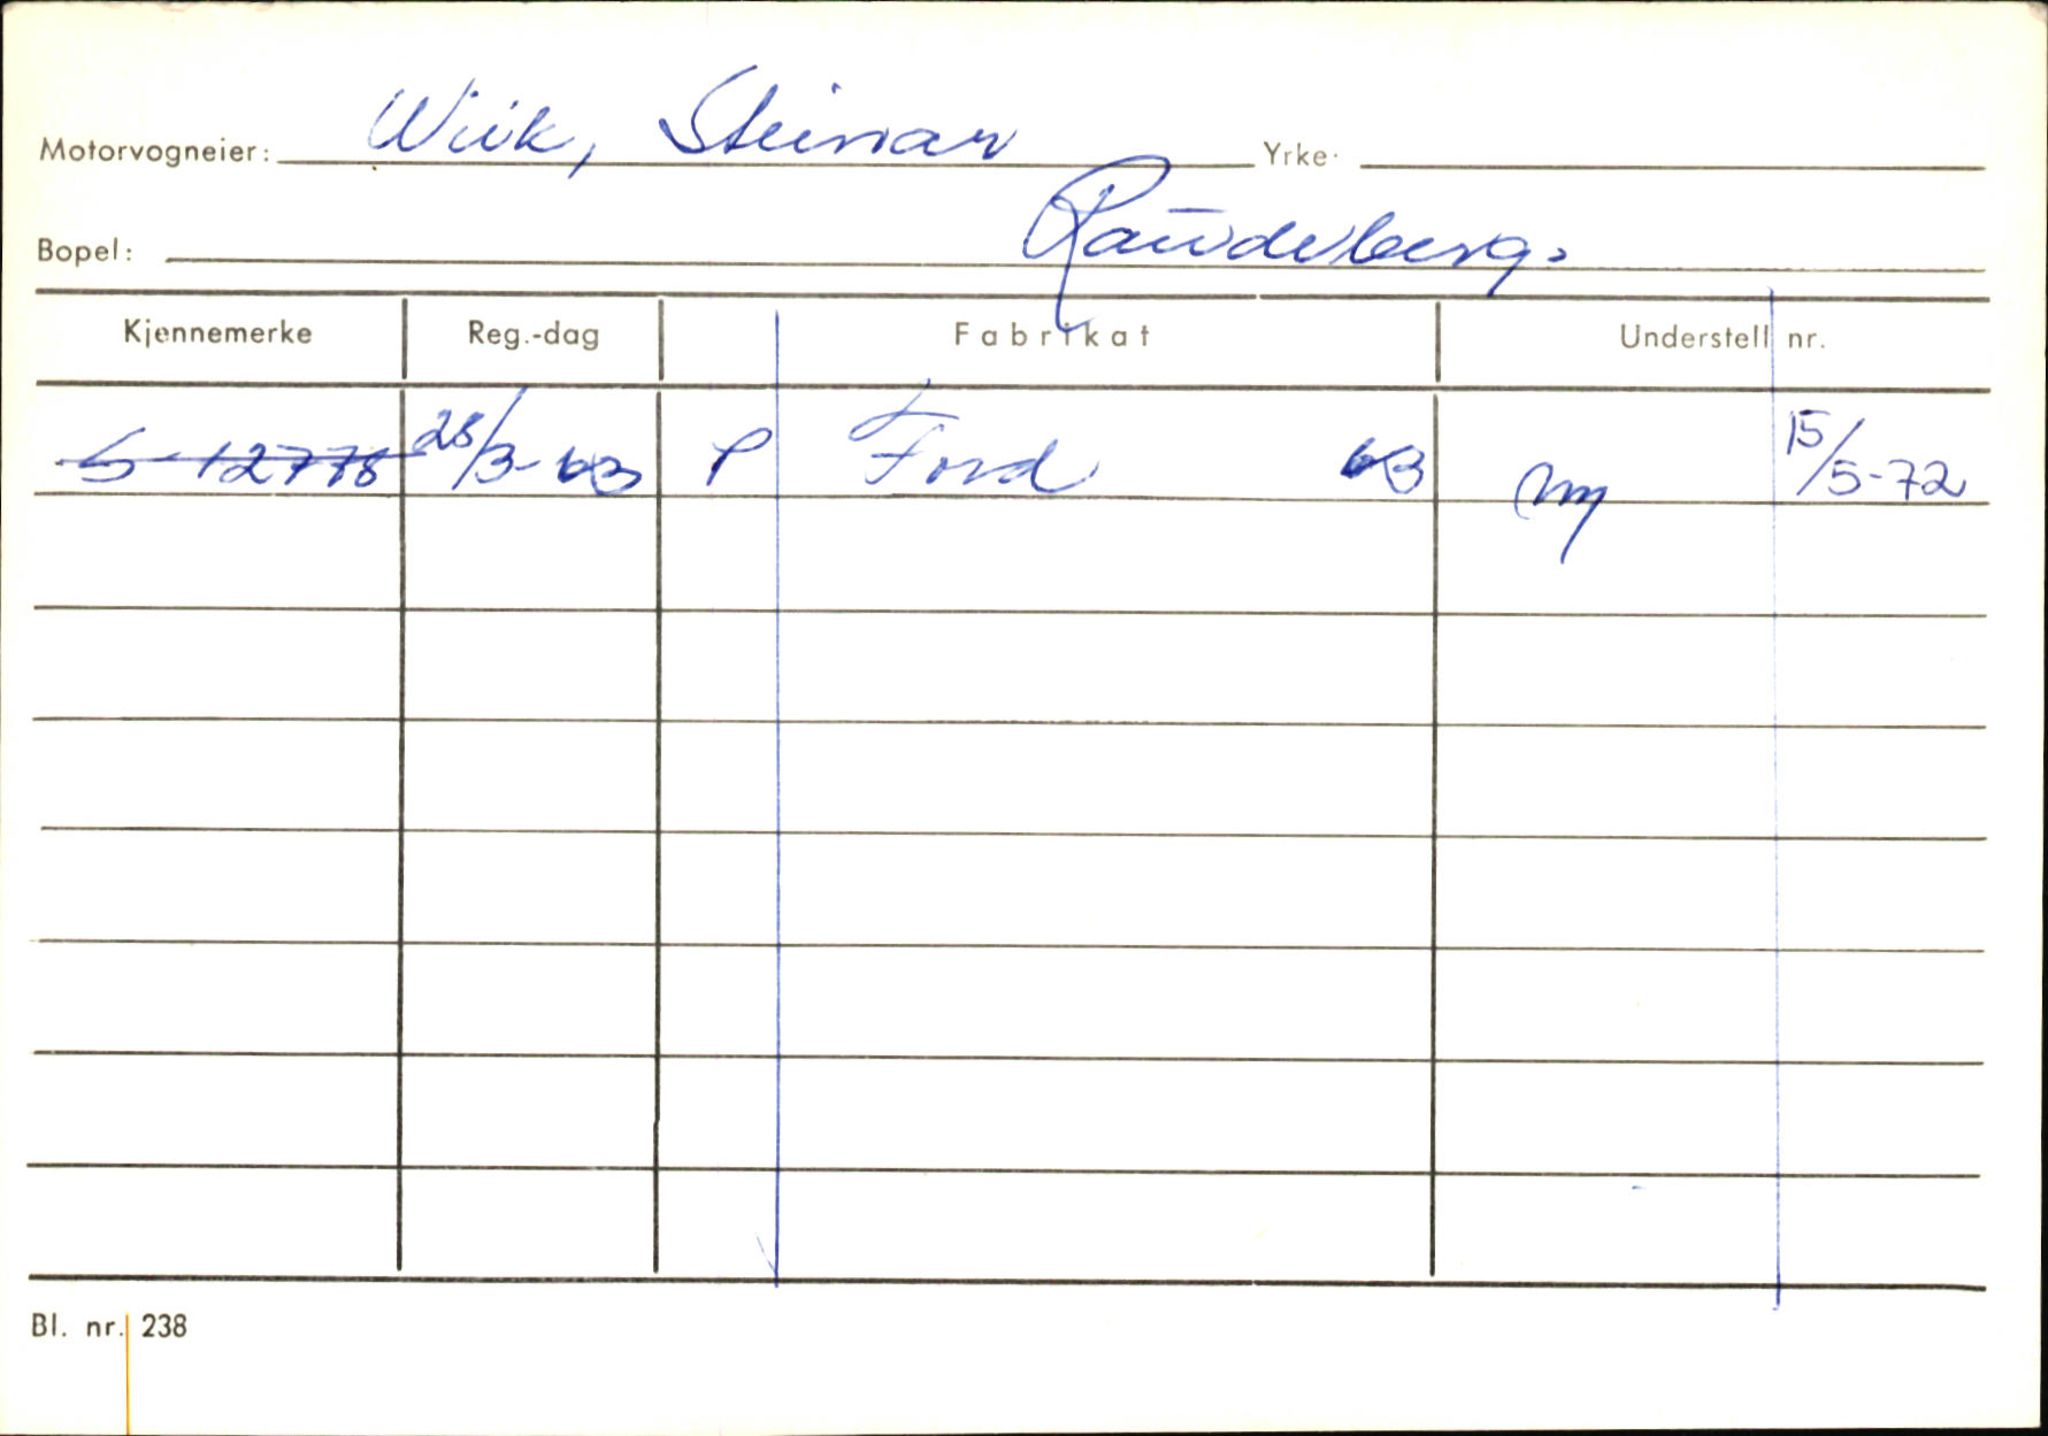 Motorvogneier: Wiik, Steinar Yrke:
Bopel: Raudeberg.
Kjennemerke Reg.-dag Fabrikat Understell nr.
S-12778 28/3-63 P Ford 63 ny 15/5-72
Bl. nr. 238